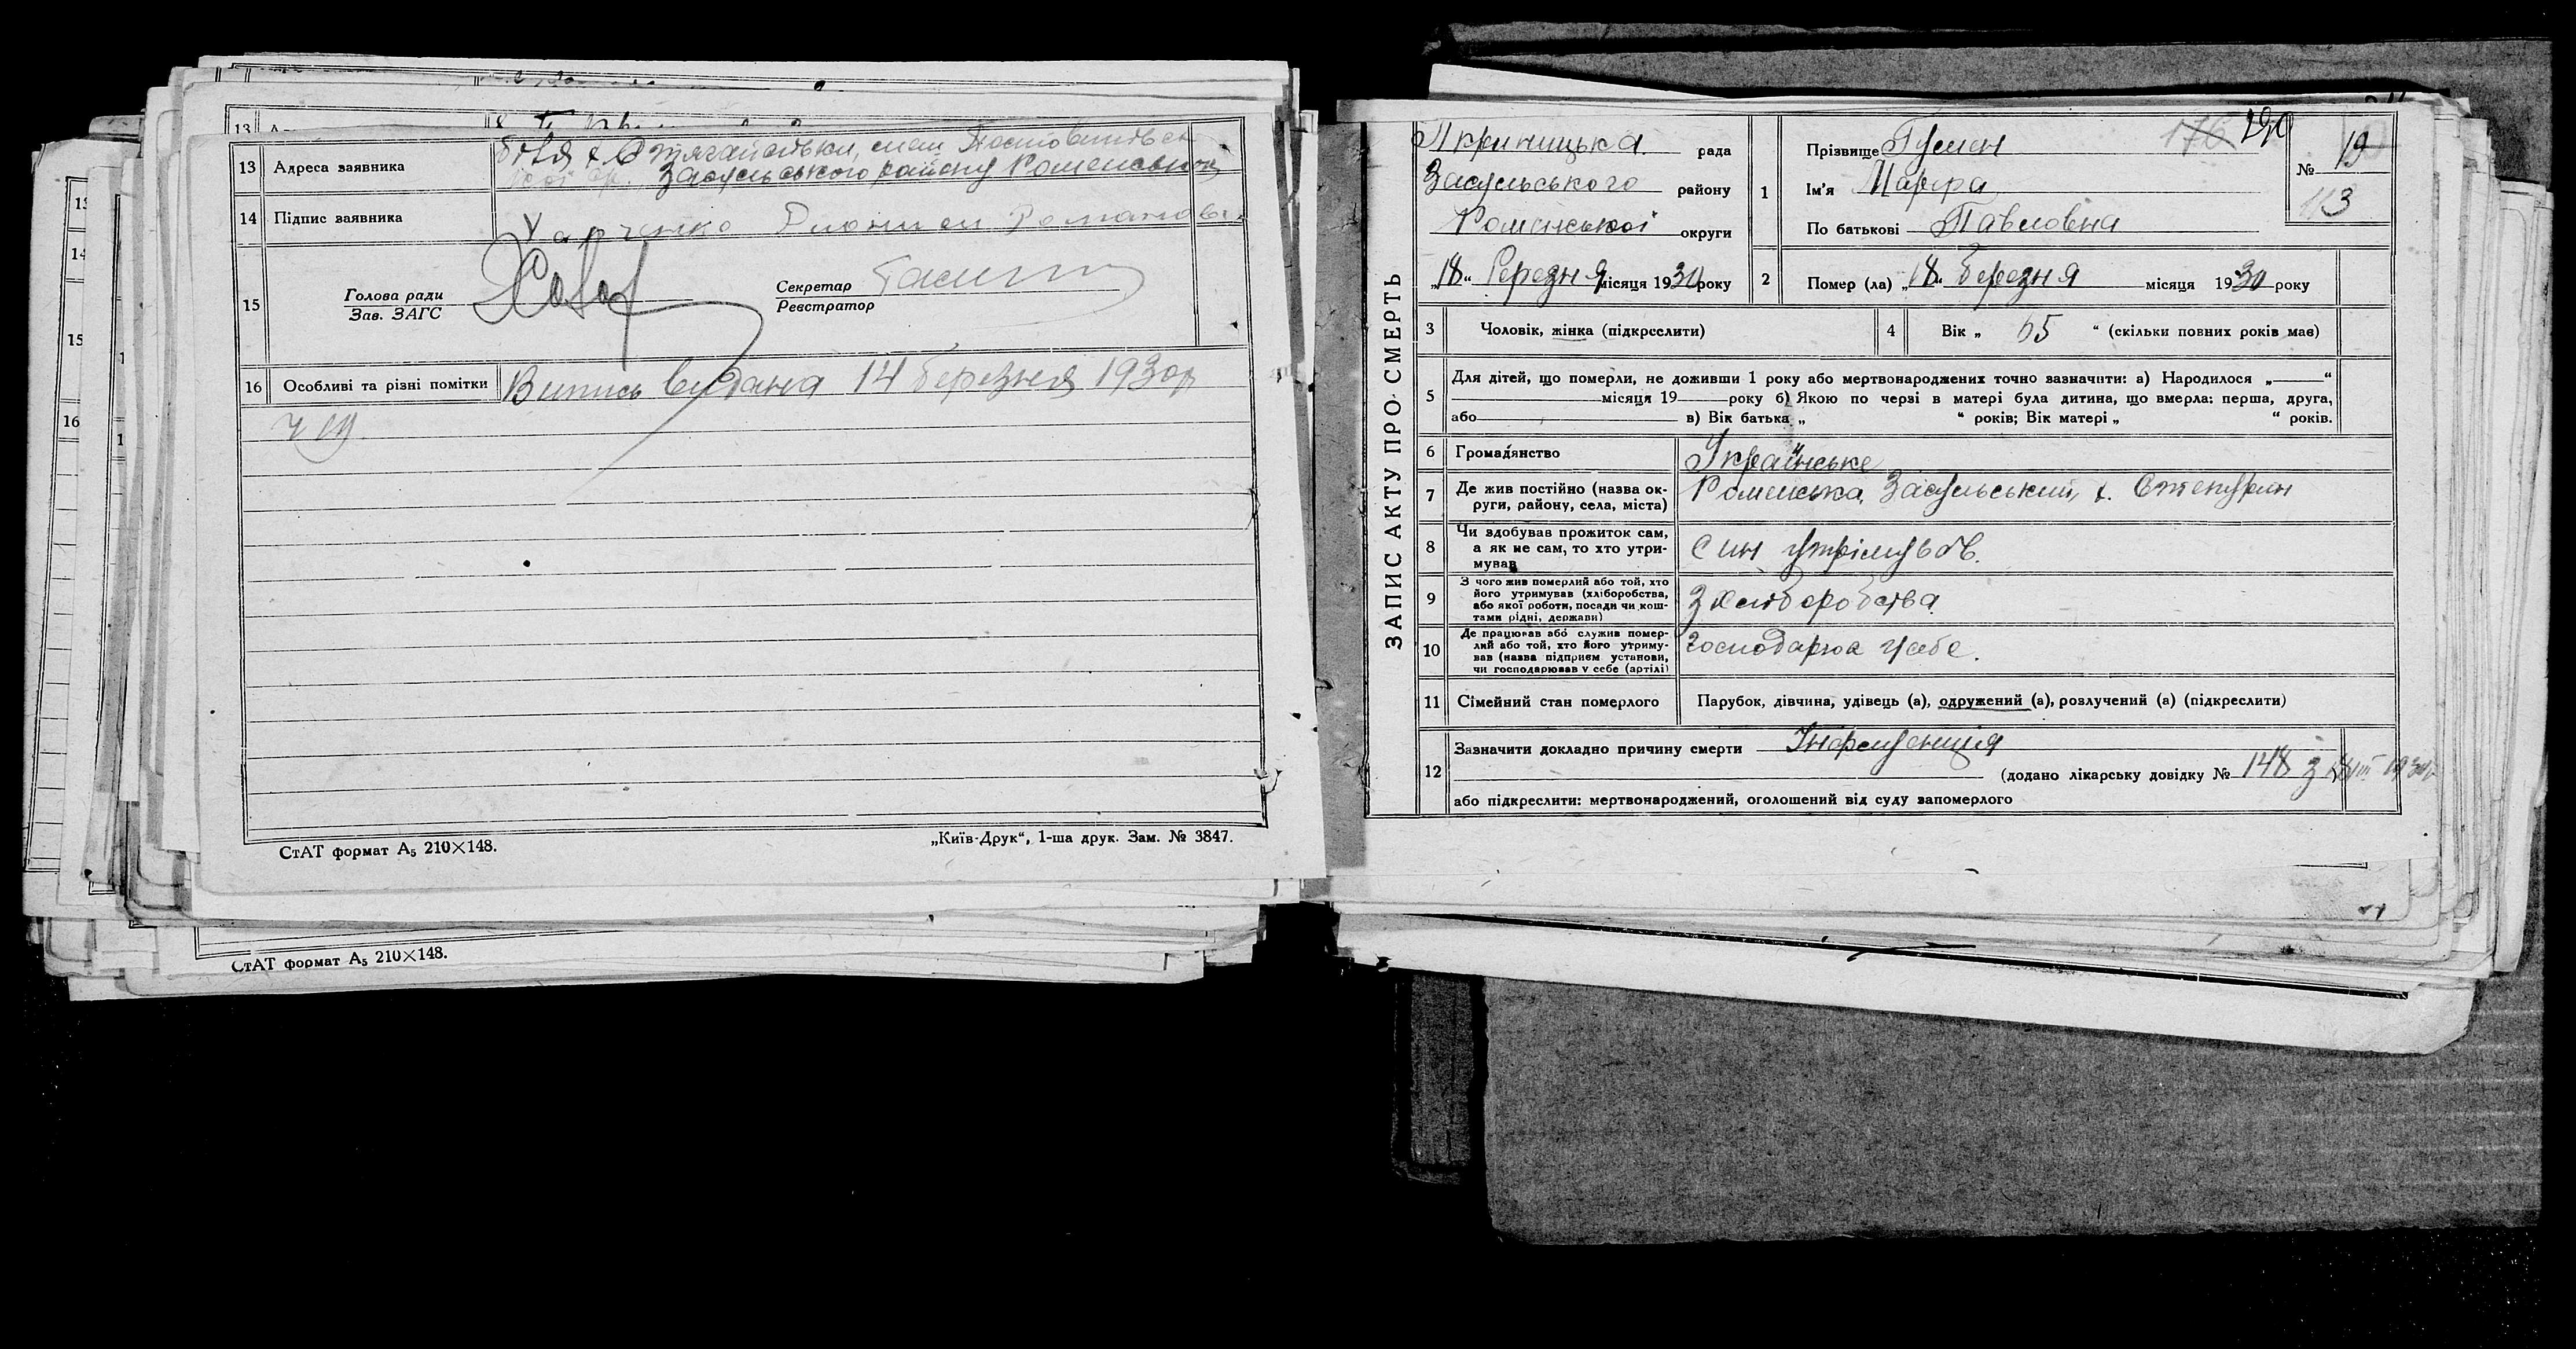 13 Адреса заявника
Засульського району Роменської
14 Підпис заявника
Харченко Романов
15 Голова ради
Зав. ЗАГС
Секретар
Реєстратор
16 Особливі та різні помітки Випись видана 14 березня 1930р
СтАТ формат А5 210×148.
„Київ-Друк“, 1-ша друк. Зам. № 3847.
СтАТ формат А5 210×148.
ЗАПИС АКТУ ПРО СМЕРТЬ
рада
Засульського району
Роменської округи
„18“ Березня місяця 1930 року
1 Прізвище Гумен
Ім'я Марфа
По батькові Павловна
176 190
№ 19
113
2 Помер (ла) „18“ березня місяця 1930 року
3 Чоловік, жінка (підкреслити)
4 Вік „ 65 “ (скільки повних років мав)
5 Для дітей, що померли, не доживши 1 року або мертвонароджених точно зазначити: а) Народилося „ “
місяця 19 року б) Якою по черзі в матері була дитина, що вмерла: перша, друга,
або в) Вік батька „ “ років; Вік матері „ “ років.
6 Громадянство Українське
7 Де жив постійно (назва округи, району, села, міста) Роменська, Засульський, х.
8 Чи здобував прожиток сам, а як не сам, то хто утримував син утрімував.
9 З чого жив померлий або той, хто його утримував (хліборобства, або якої роботи, посади чи коштами рідні, держави) З хліборобства
10 Де працював або служив померлий або той, хто його утримував (назва підприєм установи, чи господарював у себе (артілі) господарює усебе.
11 Сімейний стан померлого Парубок, дівчина, удівець (а), одружений (а), розлучений (а) (підкреслити)
12 Зазначити докладно причину смерти Інфлуенція
(додано лікарську довідку № 148 з 18/III 1930р
або підкреслити: мертвонароджений, оголошений від суду запомерлого